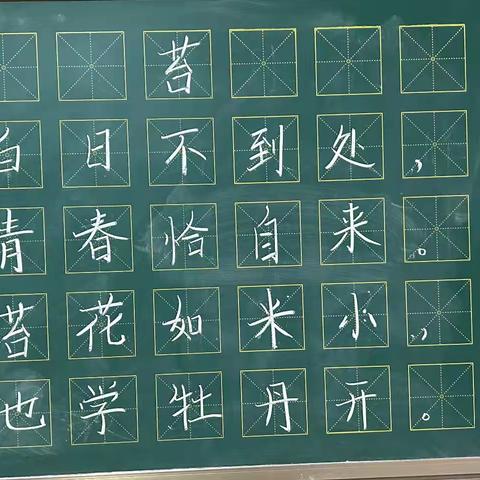 苔
白日不到处，
青春恰自来。
苔花如米小，
也学牡丹开。